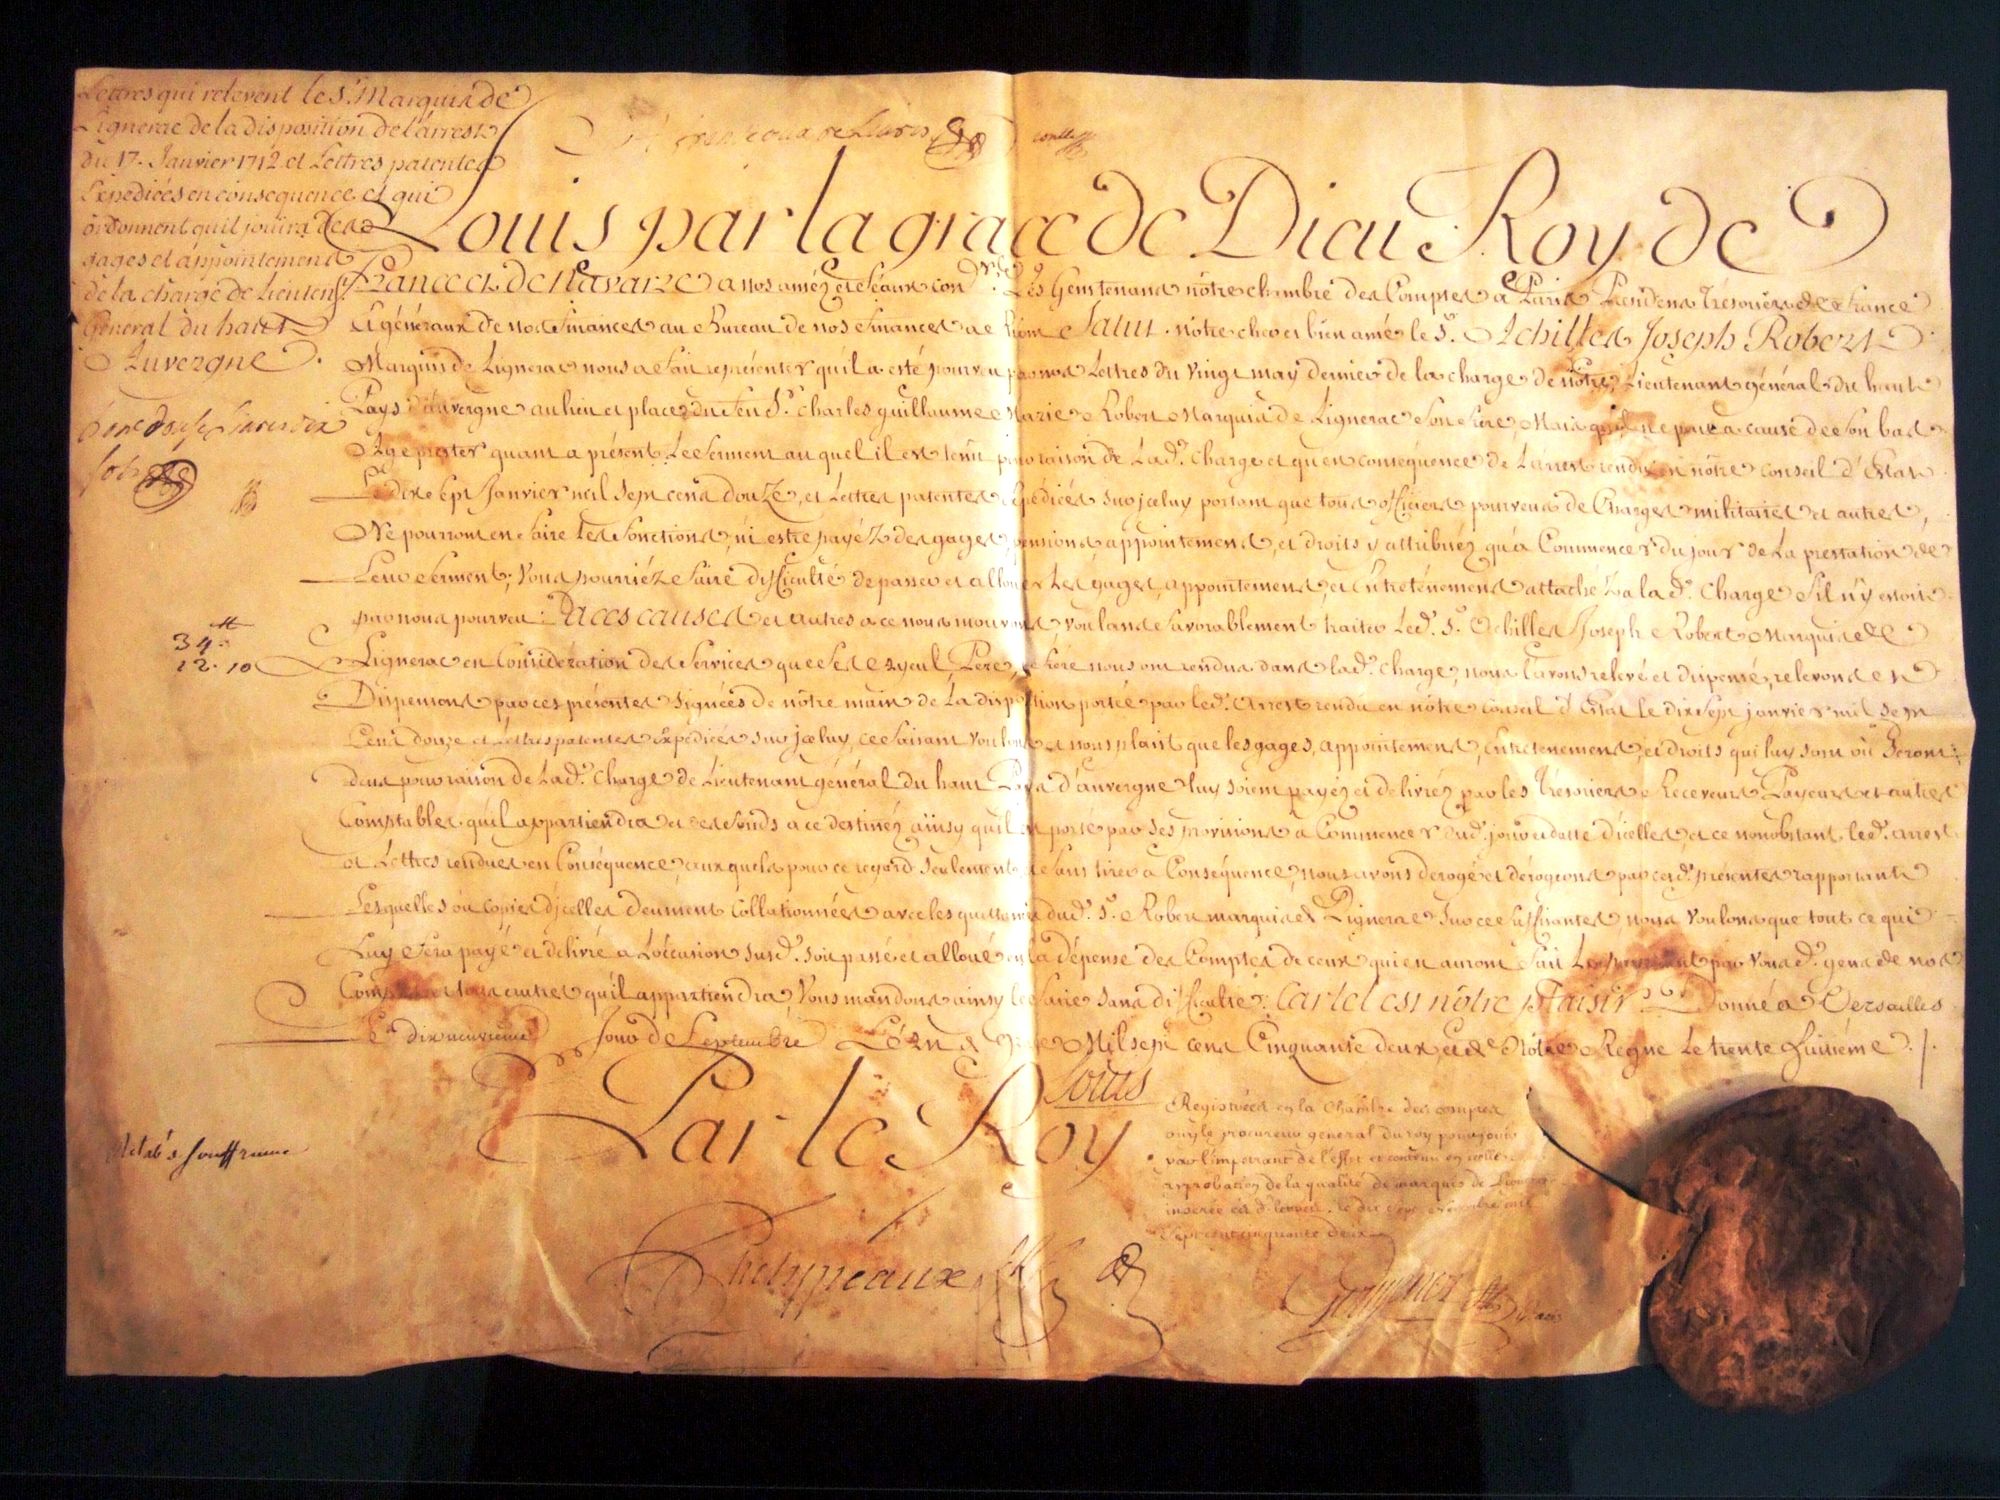 Lettres qui relevent le s. Marquis de
Lignerac de la disposition de l'arrest
du 17. Janvier 1712 et Lettres patentes
Expediées en consequence et qui
ordonnent quil jouira des
gages et appointemens
de la charge de Lieuten.t
General du haut
Auvergne.
34.tt
12. 10
Louis par la grace de Dieu Roy de
France et de Navarre a nos améz et féaux con.ers Les Gens tenans nôtre chambre des Comptes a Paris Presidens Trésoriers de france
Et généraux de nos finances au Bureau de nos finances a Riom Salut. nôtre cher et bien amé le S.r Achilles Joseph Robert
Marquis de Lignerac nous a fait représenter qu'il a esté pourveu par nos Lettres du vingt may dernier de la charge de nôtre Lieutenant général du haut
Pays d'auvergne au lieu et place du feu S.r Charles guillaume Marie Robert Marquis de Lignerac Son frere, Mais qu'il ne peut a cause de Son bas
Age prester quant a présent Le Serment au quel il est tenu pour raison de Lad. Charge et qu'en conséquence de Larrest rendu en nôtre conseil d'Estat
Le dix Sept Janvier mil Sept cens douze, et Lettres patentes expédiées sur jceluy portant que tous officiers pourveus de Charges militaires et autres,
Ne pourront en faire Les fonctions, ni estre payéz des gages, pensions, appointemens, et droits y attribuéz qu'a Commencer du jour de La prestation de
Leur Serment; Vous pourriéz faire difficulté de passer et allouer Les gages, appointemens, et Entretenemens attachéz a lad. Charge S'il n'y estoit
par nous pourveu: A ces causes et autres a ce nous mouvans, voulans favorablement traiter Led. S. Achilles Joseph Robert Marquis de
Lignerac en Considération des Services que Ses Ayeul, Pere, et frere nous ont rendus dans lad. Charge, nous L'avons relevé et dispensé, relevons et
Dispensons par ces présentes signées de nôtre main de La disposition portée par led. Arrest rendu en nôtre Conseil d'Estat le dix Sept janvier mil sept
Cens douze et Lettres patentes expédiées sur jceluy, ce faisant voulons et nous plait que les gages, appointemens, Entretenemens, et droits qui luy sont ou Seront
deus pour raison de Lad. Charge de Lieutenant général du haut Pays d'auvergne luy soient payéz et delivréz par les Trésoriers Receveurs Payeurs et autres
Comptables qu'il appartiendra et des fonds a ce destinéz ainsy quil est porté par Ses provisions a Commencer dud. jour et datte d'icelles, et ce nonobstant led. arrest
et Lettres rendues en Conséquence, auxquels pour ce regard seulement et Sans tirer a Conséquence, nous avons dérogé et dérogeons par cesd. présentes rapportant
Lesquelles ou copies d'jcelles deument collationnées avec les quittances dud. S. Robert marquis de Lignerac Sur ce Suffisantes, nous voulons que tout ce qui
Luy Sera payé et delivré a Loccasion susd. soit passé et alloué en la dépense des Comptes de ceux qui en auront fait Le payement par Vousd. gens de nos
Comptes et tous autres qu'il appartiendra, Vous mandons ainsy le faire sans difficulté: Car tel est nôtre plaisir Donné a Versailles
Le dix neuvieme jour de Septembre L'an de grace Mil sept cens Cinquante deux, et de Nôtre Regne Le trente huitieme.
Louis
Par le Roy
Registrées en la Chambre des comptes
ouy le procureur general du roy pour jouir
par l'impetrant de l'effet et contenu en icelles
approbation de la qualité de marquis de Lignerac
inserée
Sept cent cinquante deux
Phelypeaux